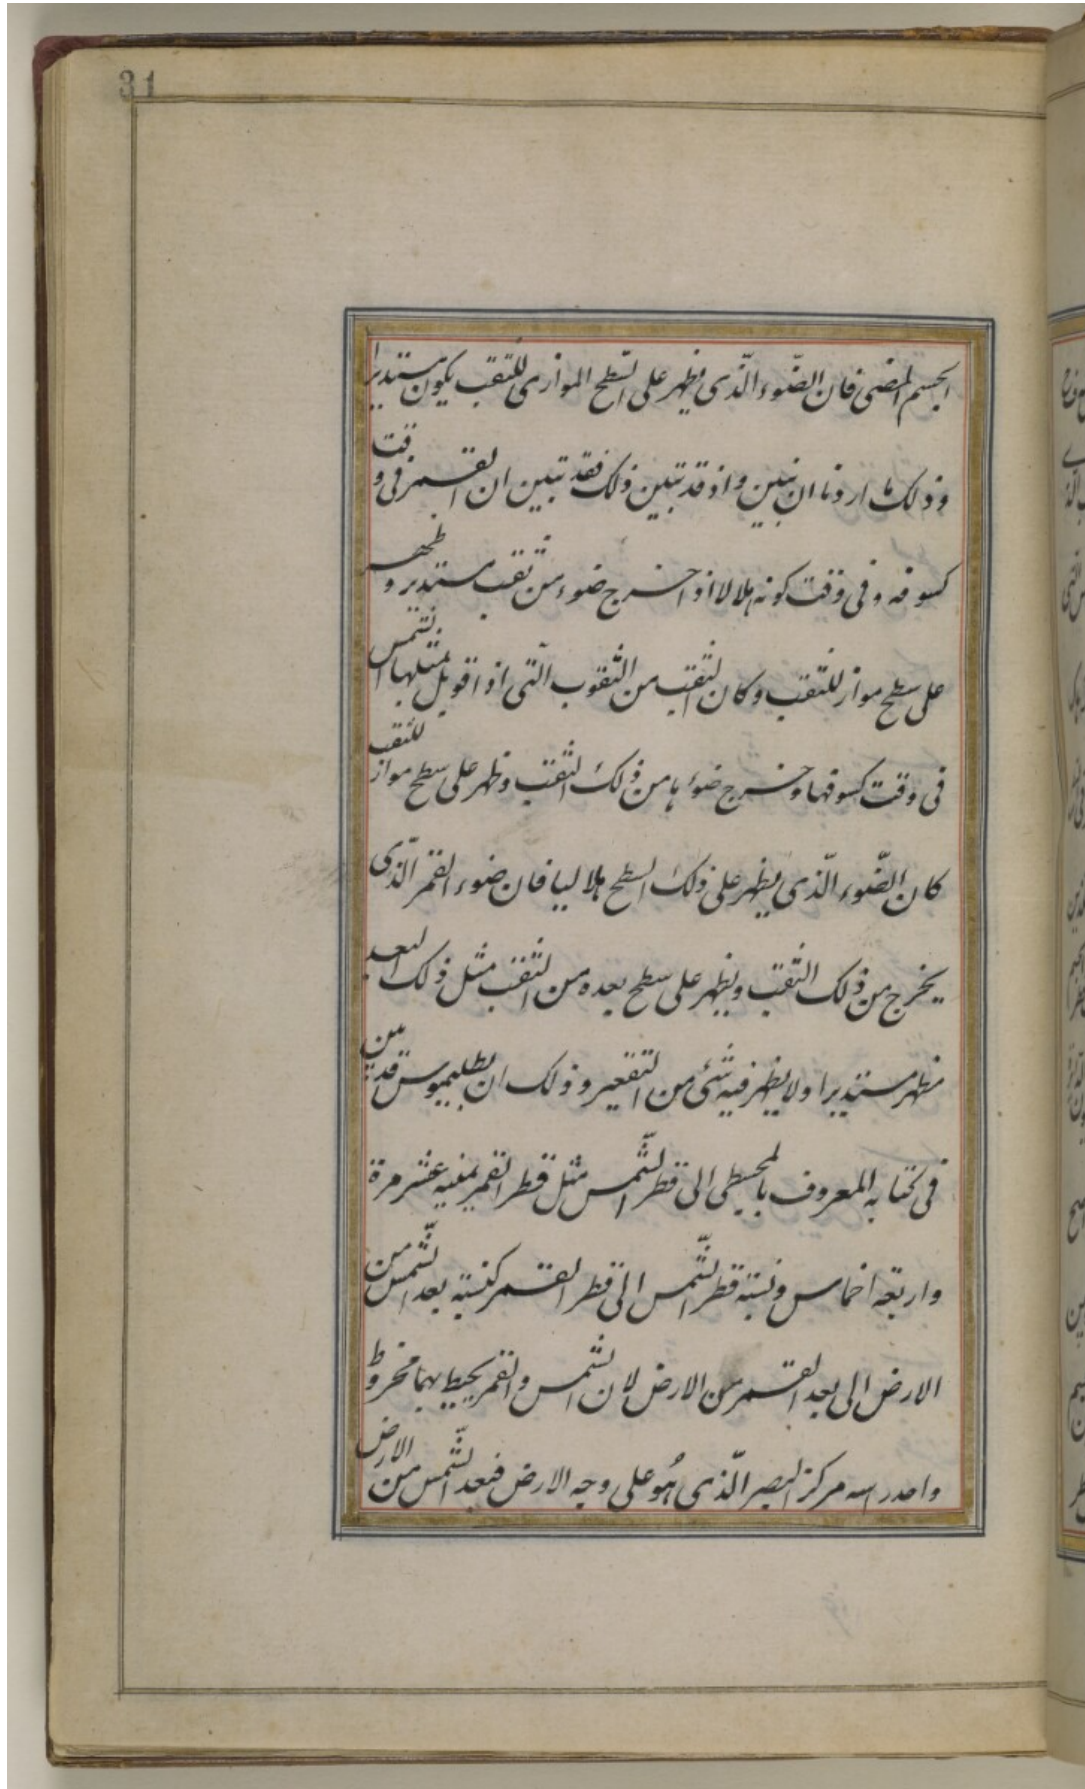 31
الجسم المضئ فان الضّوء الّذى يظهر على السّطح الموازى للثقب يكون مستديرا
وذلك ما اردنا ان نبين واذ قد تبين ذلك فقد تبين ان القمر فى وقت
كسوفه وفى وقت كونه هلالا اذا خرج ضوء من ثقب مستدير وظهر
على سطح مواز للثقب وكان الثقب من الثقوب الّتى اذا قوبل بمثلها الشمس
فى وقت كسوفها وخرج ضوءها من ذلك الثقب وظهر على سطح مواز للثقب
كان الضّوء الّذى يظهر على ذلك السطح هلاليا فان ضوء القمر الّذى
يخرج من ذلك الثقب ويظهر على سطح بعده من الثقب مثل ذلك البعد
يظهر مستديرا ولا يظهر فيه شئ من التقعير وذلك ان بطليموس قد بين
فى كتابه المعروف بالمجسطى الى قطر الشّمس مثل قطر القمر ثمنيه عشر مرة
واربعه اخماس ونسبته قطر الشّمس الى قطر القمر كنسبته بعد الشّمس من
الارض الى بعد القمر من الارض لان الشمس والقمر يحيط بهما مخروط
واحد راسه مركز البصر الّذى هُو على وجه الارض فبعد الشّمس من الارض